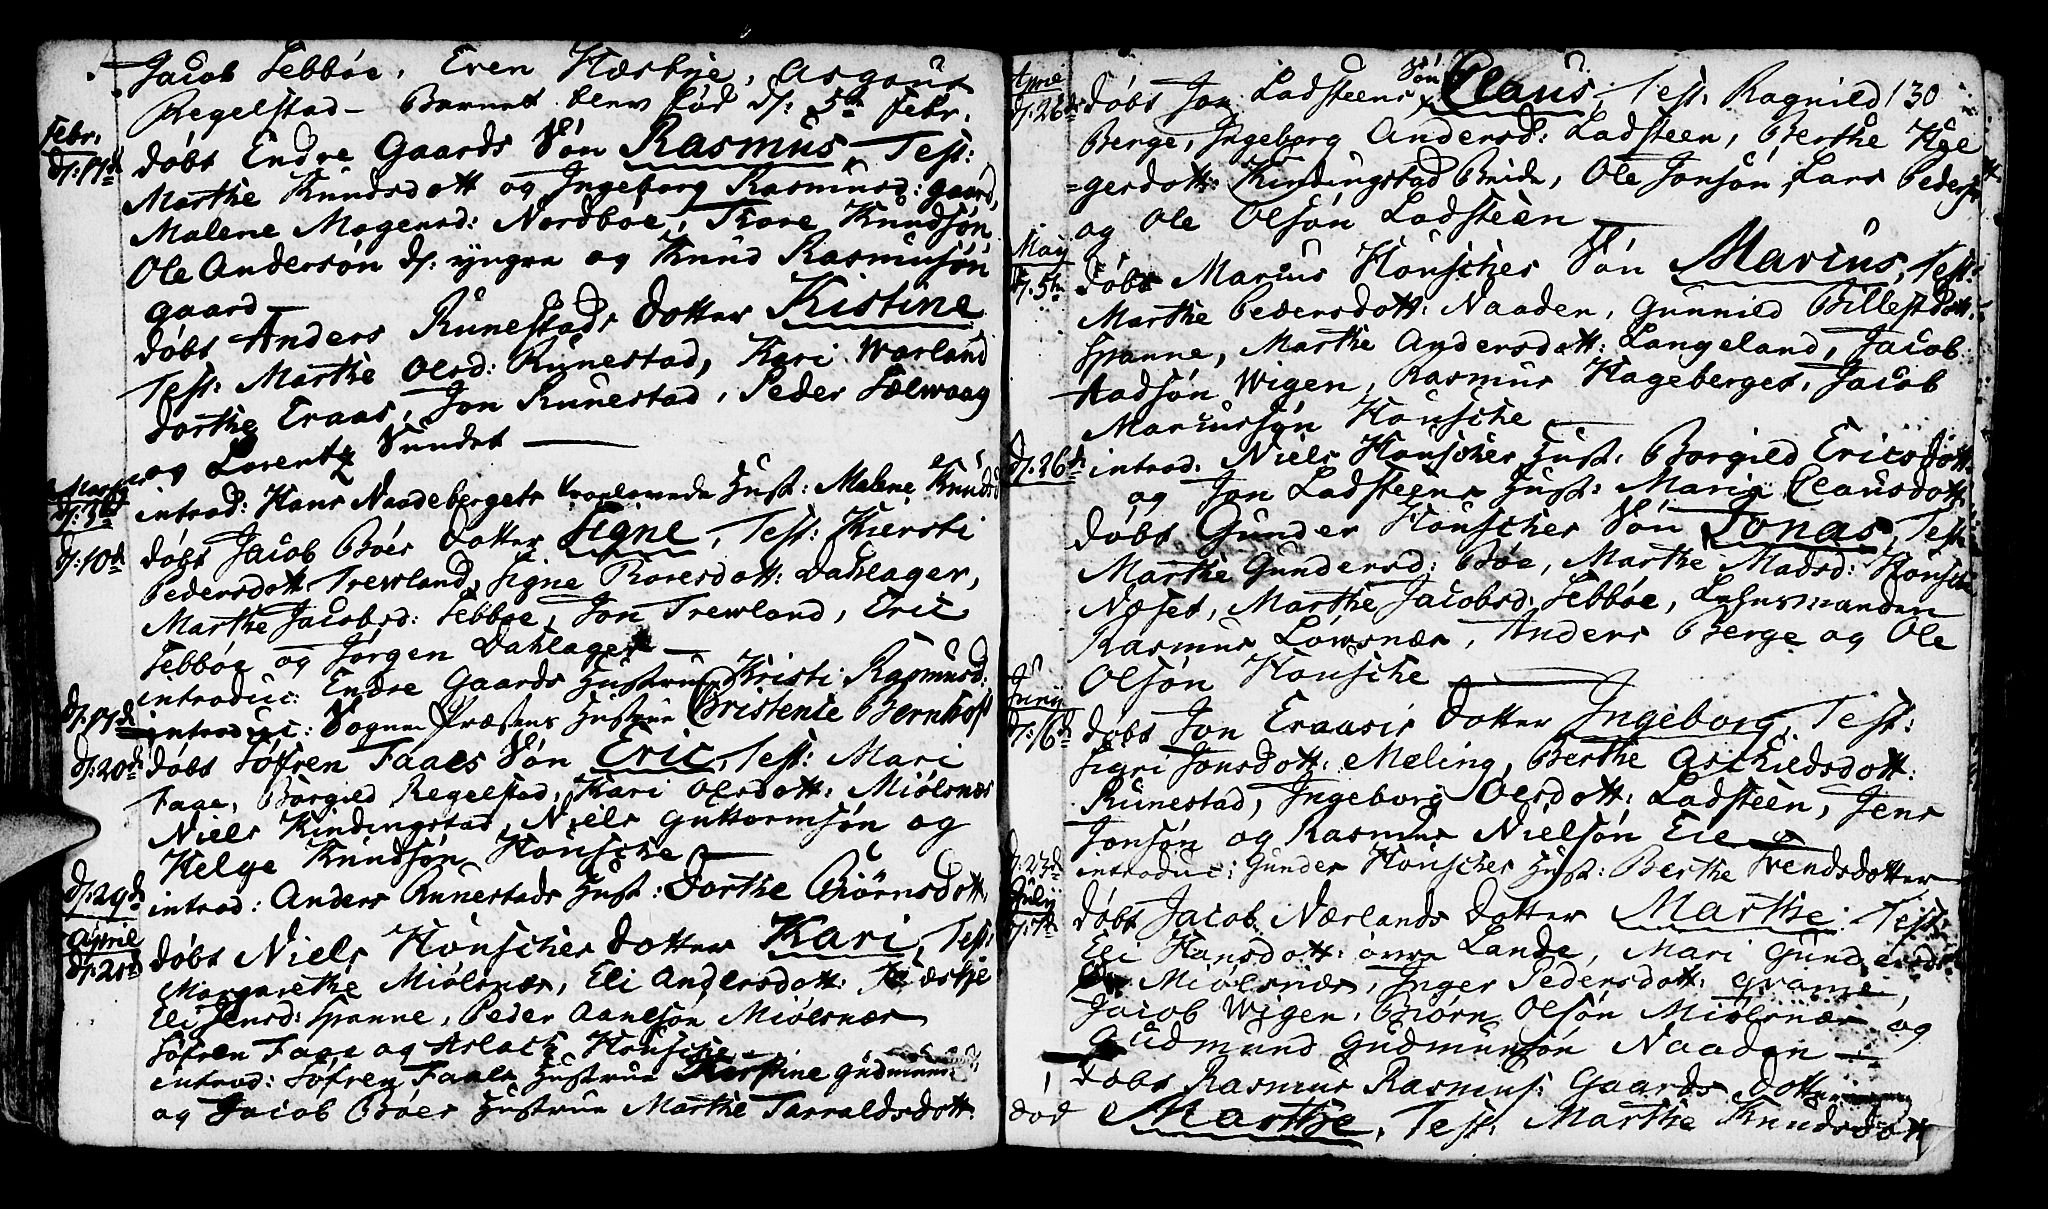 Jacob Sebbøe, Even Hæskje, Asgaut
Regelstad - Barnet blev fød d: 5te Febr.
Febr:
d: 17de døbt Endre Gaards Søn Rasmus, Test:
Marthe Knudsdott og Ingeborg Rasmusd: gaard,
Malene Mogensd: Nordboe, Tore Knudsøn
Ole Andersøn d: yngre og Knud Rasmusøn
gaard
døbt Anders Runestads dotter Kistine
Test: Marthe Olsd: Runestad, Kari Warland
dorthe Eraas, Jon Runestad, Peder Sælwaag
og Lorentz Sundet
Martij
d: 3de introd: Hans Naadebergets Hust: Malene Knudsd
d: 10de døbt Jacob Bøes dotter Signe, Test: Kiersti
Pedersdott Trewland, Signe Toresdott: Dahlager,
Marthe Jacobsd: Sebbøe, Jon Trewland, Eric
Sebbøe og Jørgen Dahlager
introduc: Endre Gaards Hustrue Kristi Rasmusd:
d: 17de introduc: Sogne Præstens Hustrue Christence Bernhoft
d: 20de døbt Søfren Faaes Søn Eric, Test: Mari
Faae, Borgild Regelstad, Kari Olsdott: Miølsnæs
Niels Kindingstad, Niels Guttormsøn og
Helge Knudsøn Housche
d: 29de introd: Anders Runestads Hust: Dorthe Biørnsdott
April
d: 21de døbt Niels Housches dotter Kari, Test:
Margarethe Miølsnæs, Eli Andersdott: Hæskje
Eli Jensd: Spanne, Peder Aanesøn Miølsnæs
Søfren Faae og Aslach Housche
introd: Søfren Faaes Hustrue Kirstine
og Jacob Bøes Hustrue Marthe Tarraldsdott:
April
d: 28de døbt Jon Ladsteens Søn Claus, Test: Ragnild 130
Berge, Ingeborg Andersd: Ladsteen, Berthe Hel
=gesdott: Kindingstad Beide, Ole Jonsøn, Lars Peders
og Ole Olsøn Ladsteen
May
d: 5te døbt Marius Housches Søn Marius, Test:
Marthe Pedersdott: Naaden, Gunnild Billesdott:
Spanne, Marthe Andersdott: Langeland, Jacob
Aadsøn Wigen, Rasmus Hageberget, Jacob
Mariussøn Housche
d: 26de introd: Niels Housches Hust: Borgild Ericsdott
og Jon Ladsteens Hust: Marie Clausdott
døbt Gunder Housches Søn Jonas, Test
Marthe Gundersd: Bøe, Marthe Madsd: Housche
Næset, Marthe Jacobsd: Sebbøe, Lehnsmanden
Rasmus Løwsnæs, Anders Berge og Ole
Olsøn Housche
Junij
d: 16de døbt Jon Eraasis dotter Ingeborg, Test:
Sigri Jonsdott: Meling, Berthe Aschieldsdott:
Runestad, Ingeborg Olsdott: Ladsteen, Jens
Jonsøn og Rasmus Nielsøn Eie
d: 23de introduc: Gunder Housches Hust: Berthe Svendsdotter
Julij
d: 7de døbt Jacob Nærlands dotter Marthe: Test:
Eli Hansdott: øvre Lande, Mari Gundersd
Miølsnæs, Inger Pedersdott:
Jacob Wigen, Biørn Olsøn Miølsnæs og
Gudmund Gudmunsøn Naaden
døbt Rasmus Rasmus: Gaards dotter
død Marthe, Test: Marthe Knudsdott